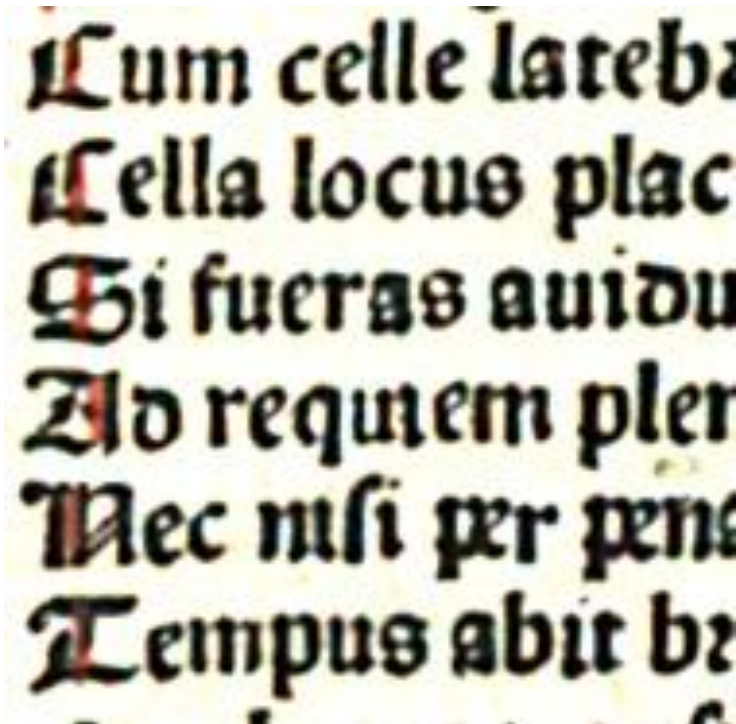 Cum celle lateb
Cella locus plac
Si fueras auidu
Ad requiem plen
Nec niſi per pens
Tempus abit br